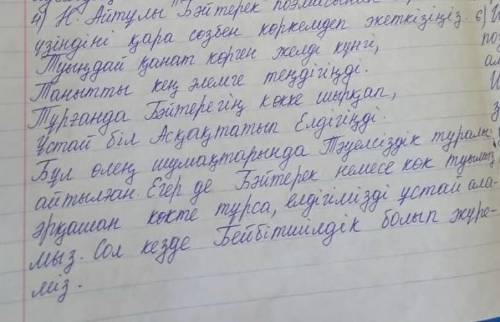 и) Н. Айтулы Бәйтерек поэмасынан
үзіндіні қара сөзбен көркемдеп жеткізіңіз. с)
Туыңдай қанат көрген желді күнгі,
Танытты кең әлемге теңдігіңді.
Тұрғанда Бәйтерегің көкке шырқап,
Ұстай біл Асқақтатып Елдігіңді.
Бұл өлең шумақтарында Тәуелсіздік туралы
айтылған. Егер де Бәйтерек немесе көк туымыз
әрқашан көкте турса, елдігімізді устай ала-
мыз. Сол кезде Бейбітшилдік болып жүре-
міз.